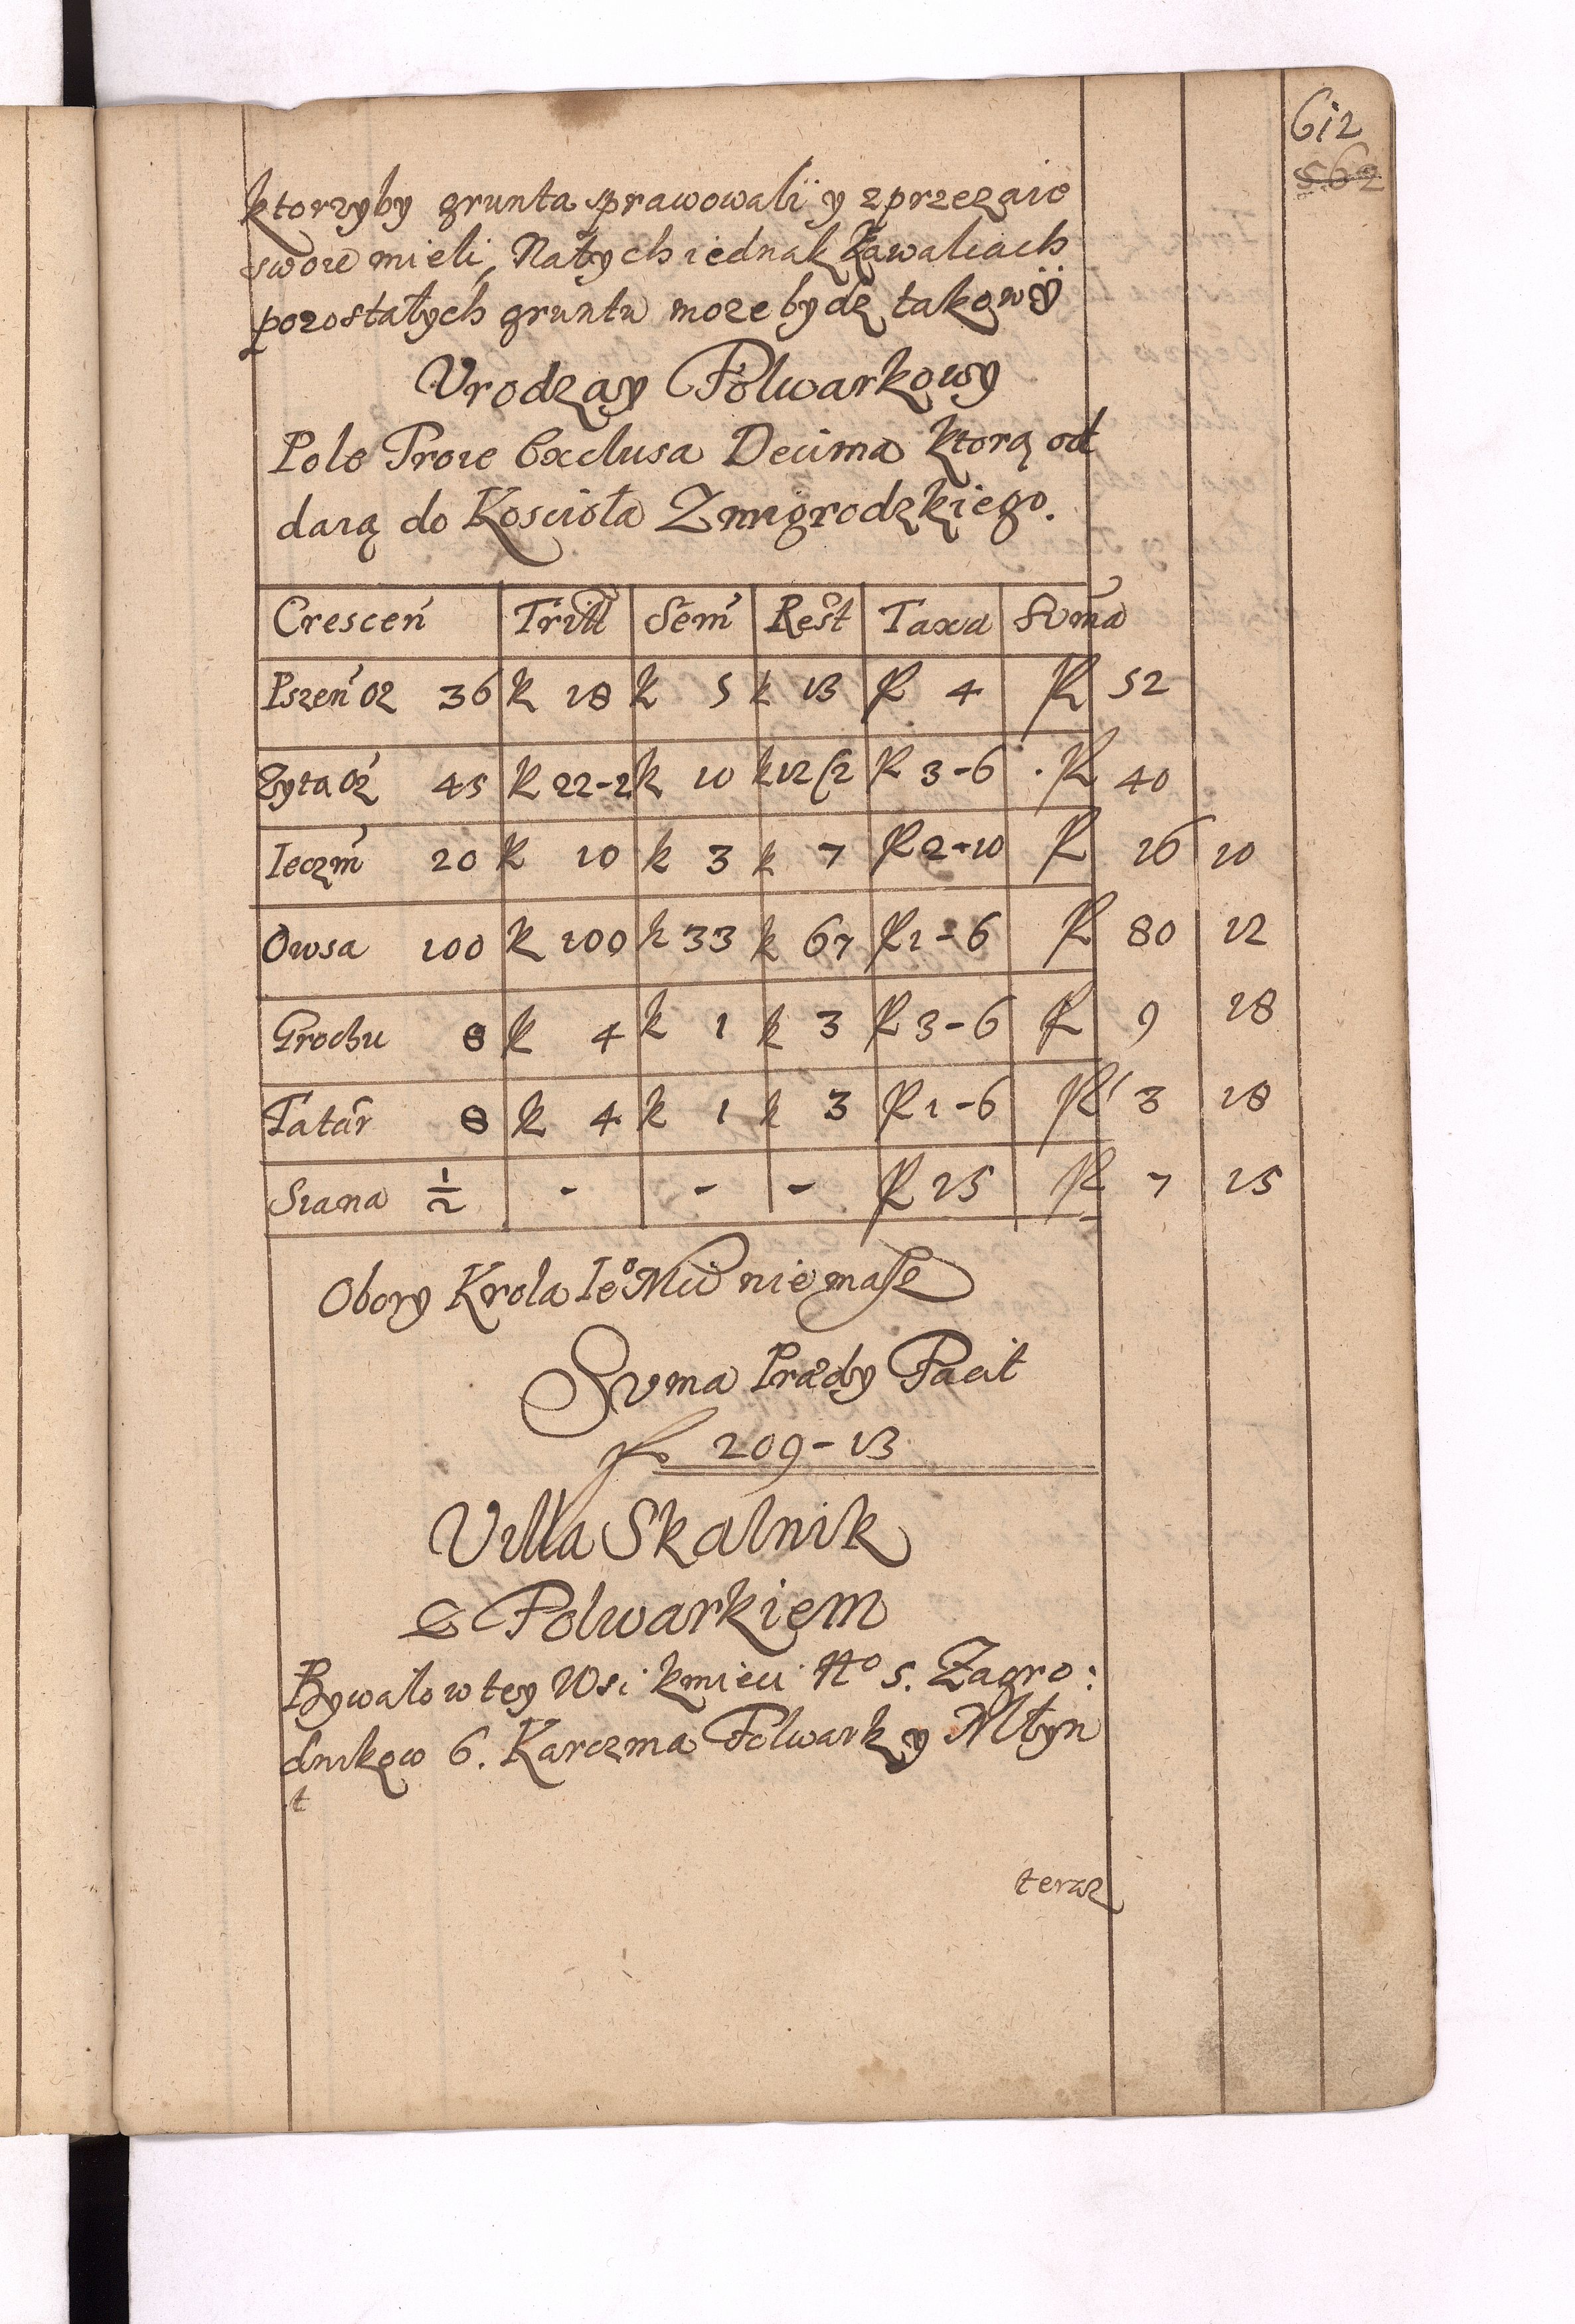 612
562
ktorzyby grunta sprawowali y zprzezaie
swoie mieli, Natych iednak Kawalcach
pozostałych gruntu moze bydz takowÿ
Vrodzay Folwarkowy
Pole Troie Exclusa Decima ktorą od
daią do Kościoła Zmigrodzkiego.
Crescen̄ Tritt Sem̄ Rest Taxa Suma
Pszen̄ oz 36 k 18 k 5 k 13 fl 4 fl 52
Zyta oz 45 k 22-2 k 10 k 12/2 fl 3-6 fl 40
Ieczm̄ 20 k 10 k 3 k 7 fl 2-10 fl 16 10
Owsa 100 k 100 k 33 k 67 fl 1-6 fl 80 12
Grochu 8 k 4 k 1 k 3 fl 3-6 fl 9 18
Tatar 8 k 4 k 1 k 3 fl 1-6 fl 3 18
Siana 1/2 - - - fl 15 fl 7 15
Obory Krola Ieo Mci nie masz
Suma Prædy Facit
fl 209-13
Villa Skalnik
z Folwarkiem
Bywało w tey Wsi kmieci No 5. Zagro:
dnikow 6. Karczma Folwark y Młyn
t
teraz